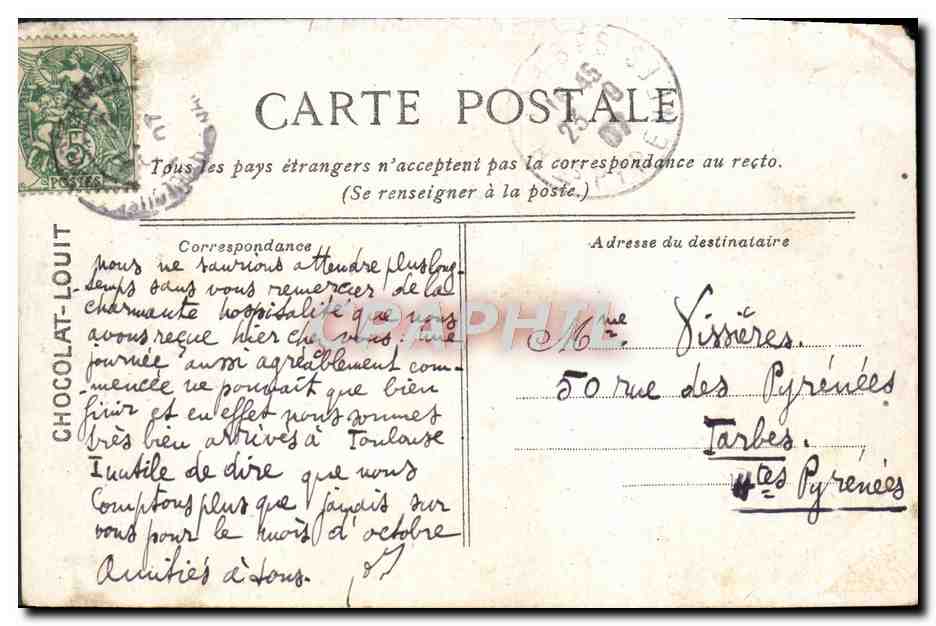 CARTE POSTALE
Tous les pays étrangers n'acceptent pas la correspondance au recto.
(Se renseigner à la poste.)
CHOCOLAT-LOUIT
5c
POSTES
25 - 9
07
Correspondance
nous ne saurions attendre plus long-
temps sans vous remercier de la
charmante hospitalité que nous
avons reçue hier chez vous : une
journée aussi agréablement com-
mencée ne pouvait que bien
finir et en effet nous sommes
très bien arrivés à Toulouse
Inutile de dire que nous
Comptons plus que jamais sur
vous pour le mois d'octobre
Amitiés à tous.
Adresse du destinataire
Mme. Vissières.
50 rue des Pyrénées
Tarbes.
Htes Pyrénées
CPAPHIL